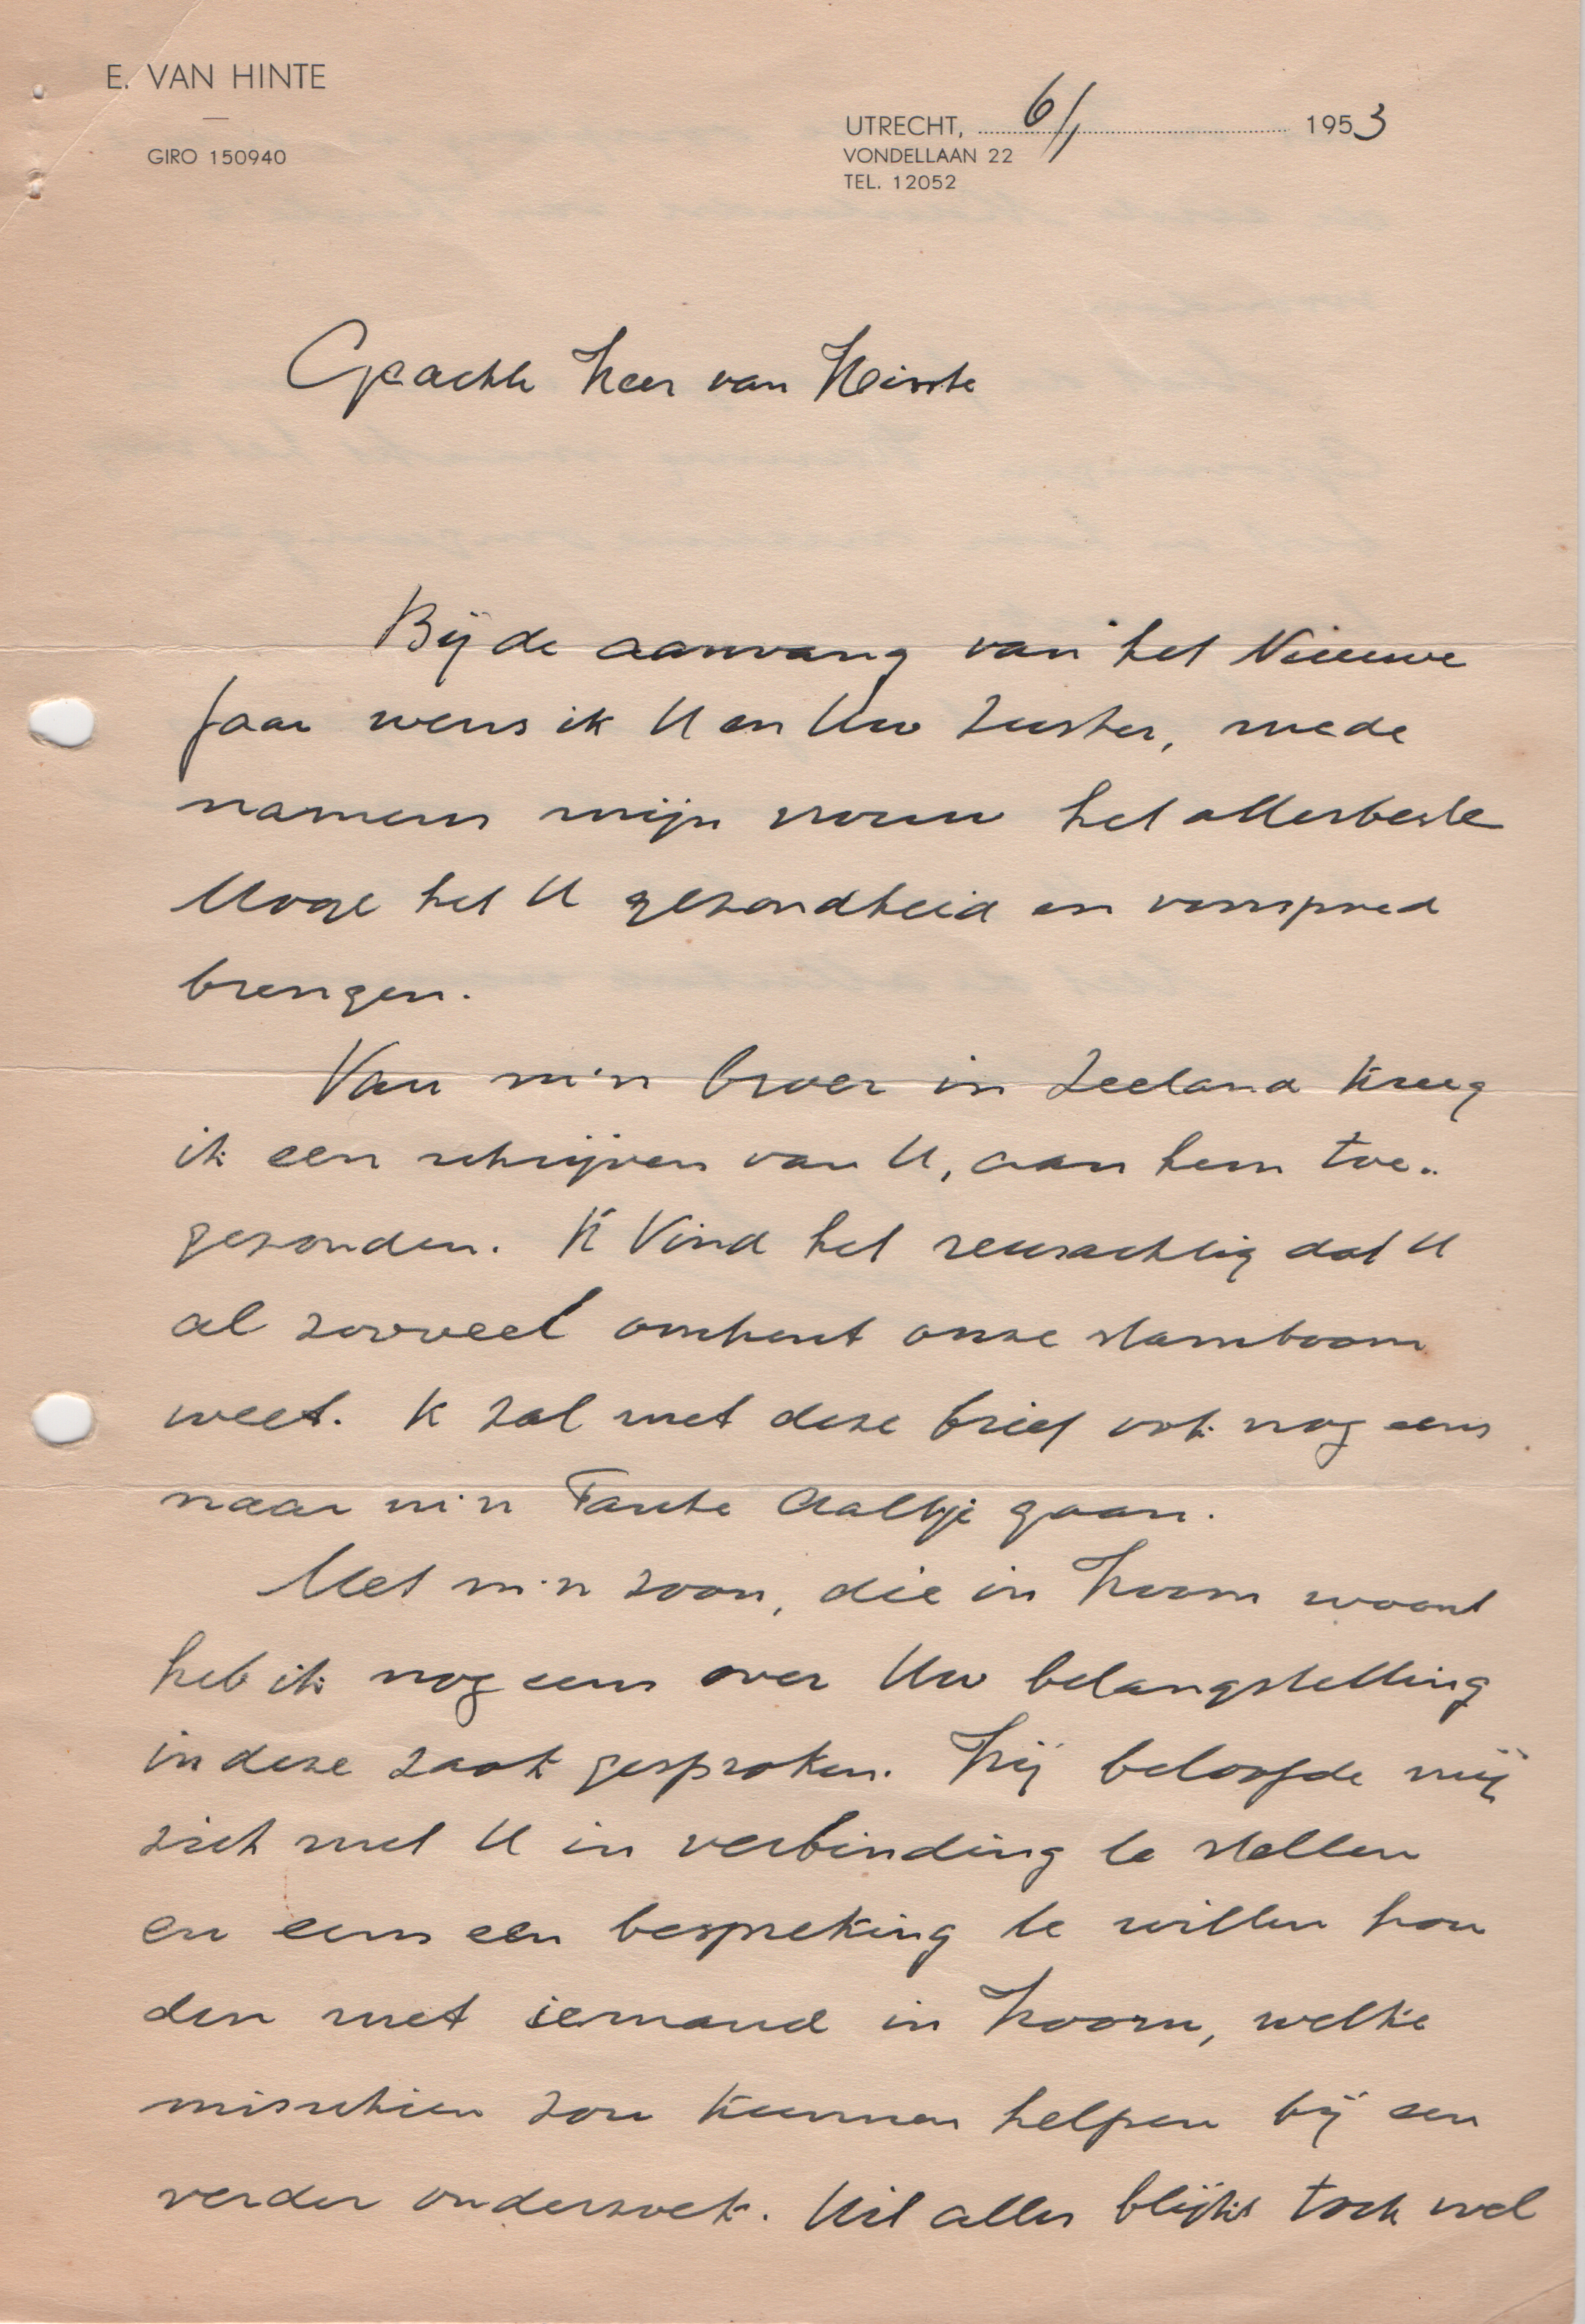 E. VAN HINTE
GIRO 150940
UTRECHT, 6/1 1953
VONDELLAAN 22
TEL. 12052
Geachte Heer van Hinte
Bij de aanvang van het Nieuwe
Jaar wens ik U en Uw Zuster, mede
namens mijn vrouw het allerbeste
Moge het U gezondheid en voorspoed
brengen.
Van m'n broer in Zeeland kreeg
ik een schrijven van U, aan hem toe-
gezonden. Ik Vind het reusachtig dat U
al zooveel omtrent onze stamboom
weet. Ik zal met deze brief ook nog eens
naar m'n Tante Aaltje gaan.
Met m'n zoon, die in Hoorn woont
heb ik nog eens over Uw belangstelling
in deze zaak gesproken. Hij beloofde mij
zich met U in verbinding te stellen
en eens een bespreking te willen hou
den met iemand in Hoorn, welke
misschien zou kunnen helpen bij een
verder onderzoek. Uit alles blijkt toch wel